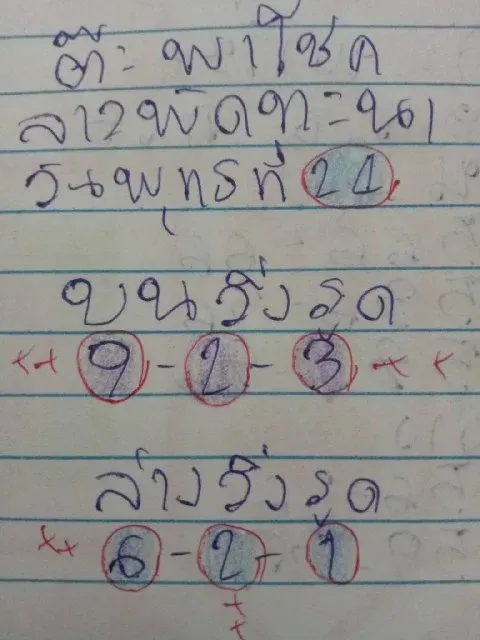 ต๊ะ พาโชค
ลาวพัดทะนา
วันพุทธที่ 21
บนวิ่งรูด
×× 9-2-3 ××
ล่างวิ่งรูด
×× 6-2-1
××